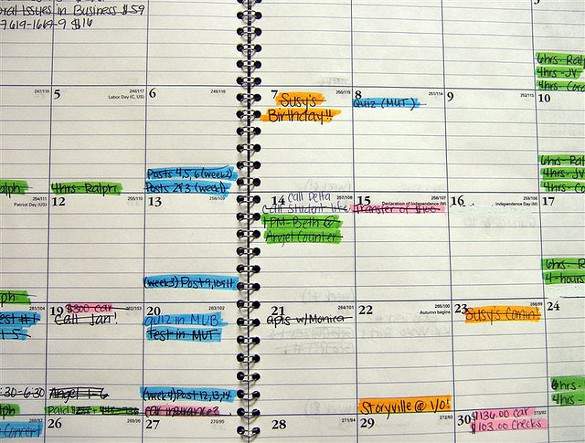 Issues in Business $59
7619-1669-9 $16
6hrs- Ralph
4hrs- JV
4hrs-
5
Labor Day (C, US)
6
7
Susy's
Birthday!!
8
Quiz (MUT)
9
10
Posts 4,5,6 (week 2)
Posts 2&3 (week 1)
4hrs- Ralph
6hrs- Ral
4hrs- JV
4hrs- Co
12
13
14
Call Delta
Call Student Life
1PM- Beth @
Angel Counter
15
Declaration of Independence (M)
Transfer of $100
16
Independence Day (M)
17
Patriot Day (US)
(week 3) Post 9,10,11
6hrs- R
4-hours
19
$300 car
Call Jan!
20
quiz in MUB
Test in MUT
21
apts w/Monica
22
Autumn begins
23
Susy's Comin'
24
:30-6:30
Angel 1-6
Paid
(week 4) Post 12,13,14
car insurance?
Storyville @ 10!
6hrs-
4hrs-
Concert
26
27
28
29
30
$136.00 car
$103.00 checks